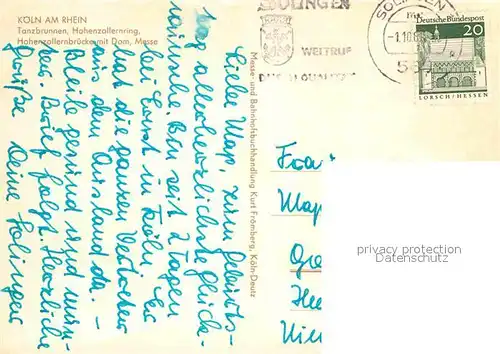 KÖLN AM RHEIN
Tanzbrunnen, Hohenzollernring,
Hohenzollernbrücke mit Dom, Messe
SOLINGEN
WELTRUF
DURCH QUALITÄT
SOLINGEN
-1.10.6
565
Deutsche Bundespost
20
LORSCH/HESSEN
Messe- und Bahnhofsbuchhandlung Kurt Fromberg, Köln-Deutz
Liebe Map, zum Geburts-
tag allerherzlichste Glück-
wünsche. Bin seit 2 Tagen
bei Ernst in Köln. Er
hat die ganzen Vertreter
aus dem Ausland da. –
Bleibe gesund und mun-
ter. Brief folgt. Herzliche
Grüße Deine
Frau
Map
privacy protection
Datenschutz